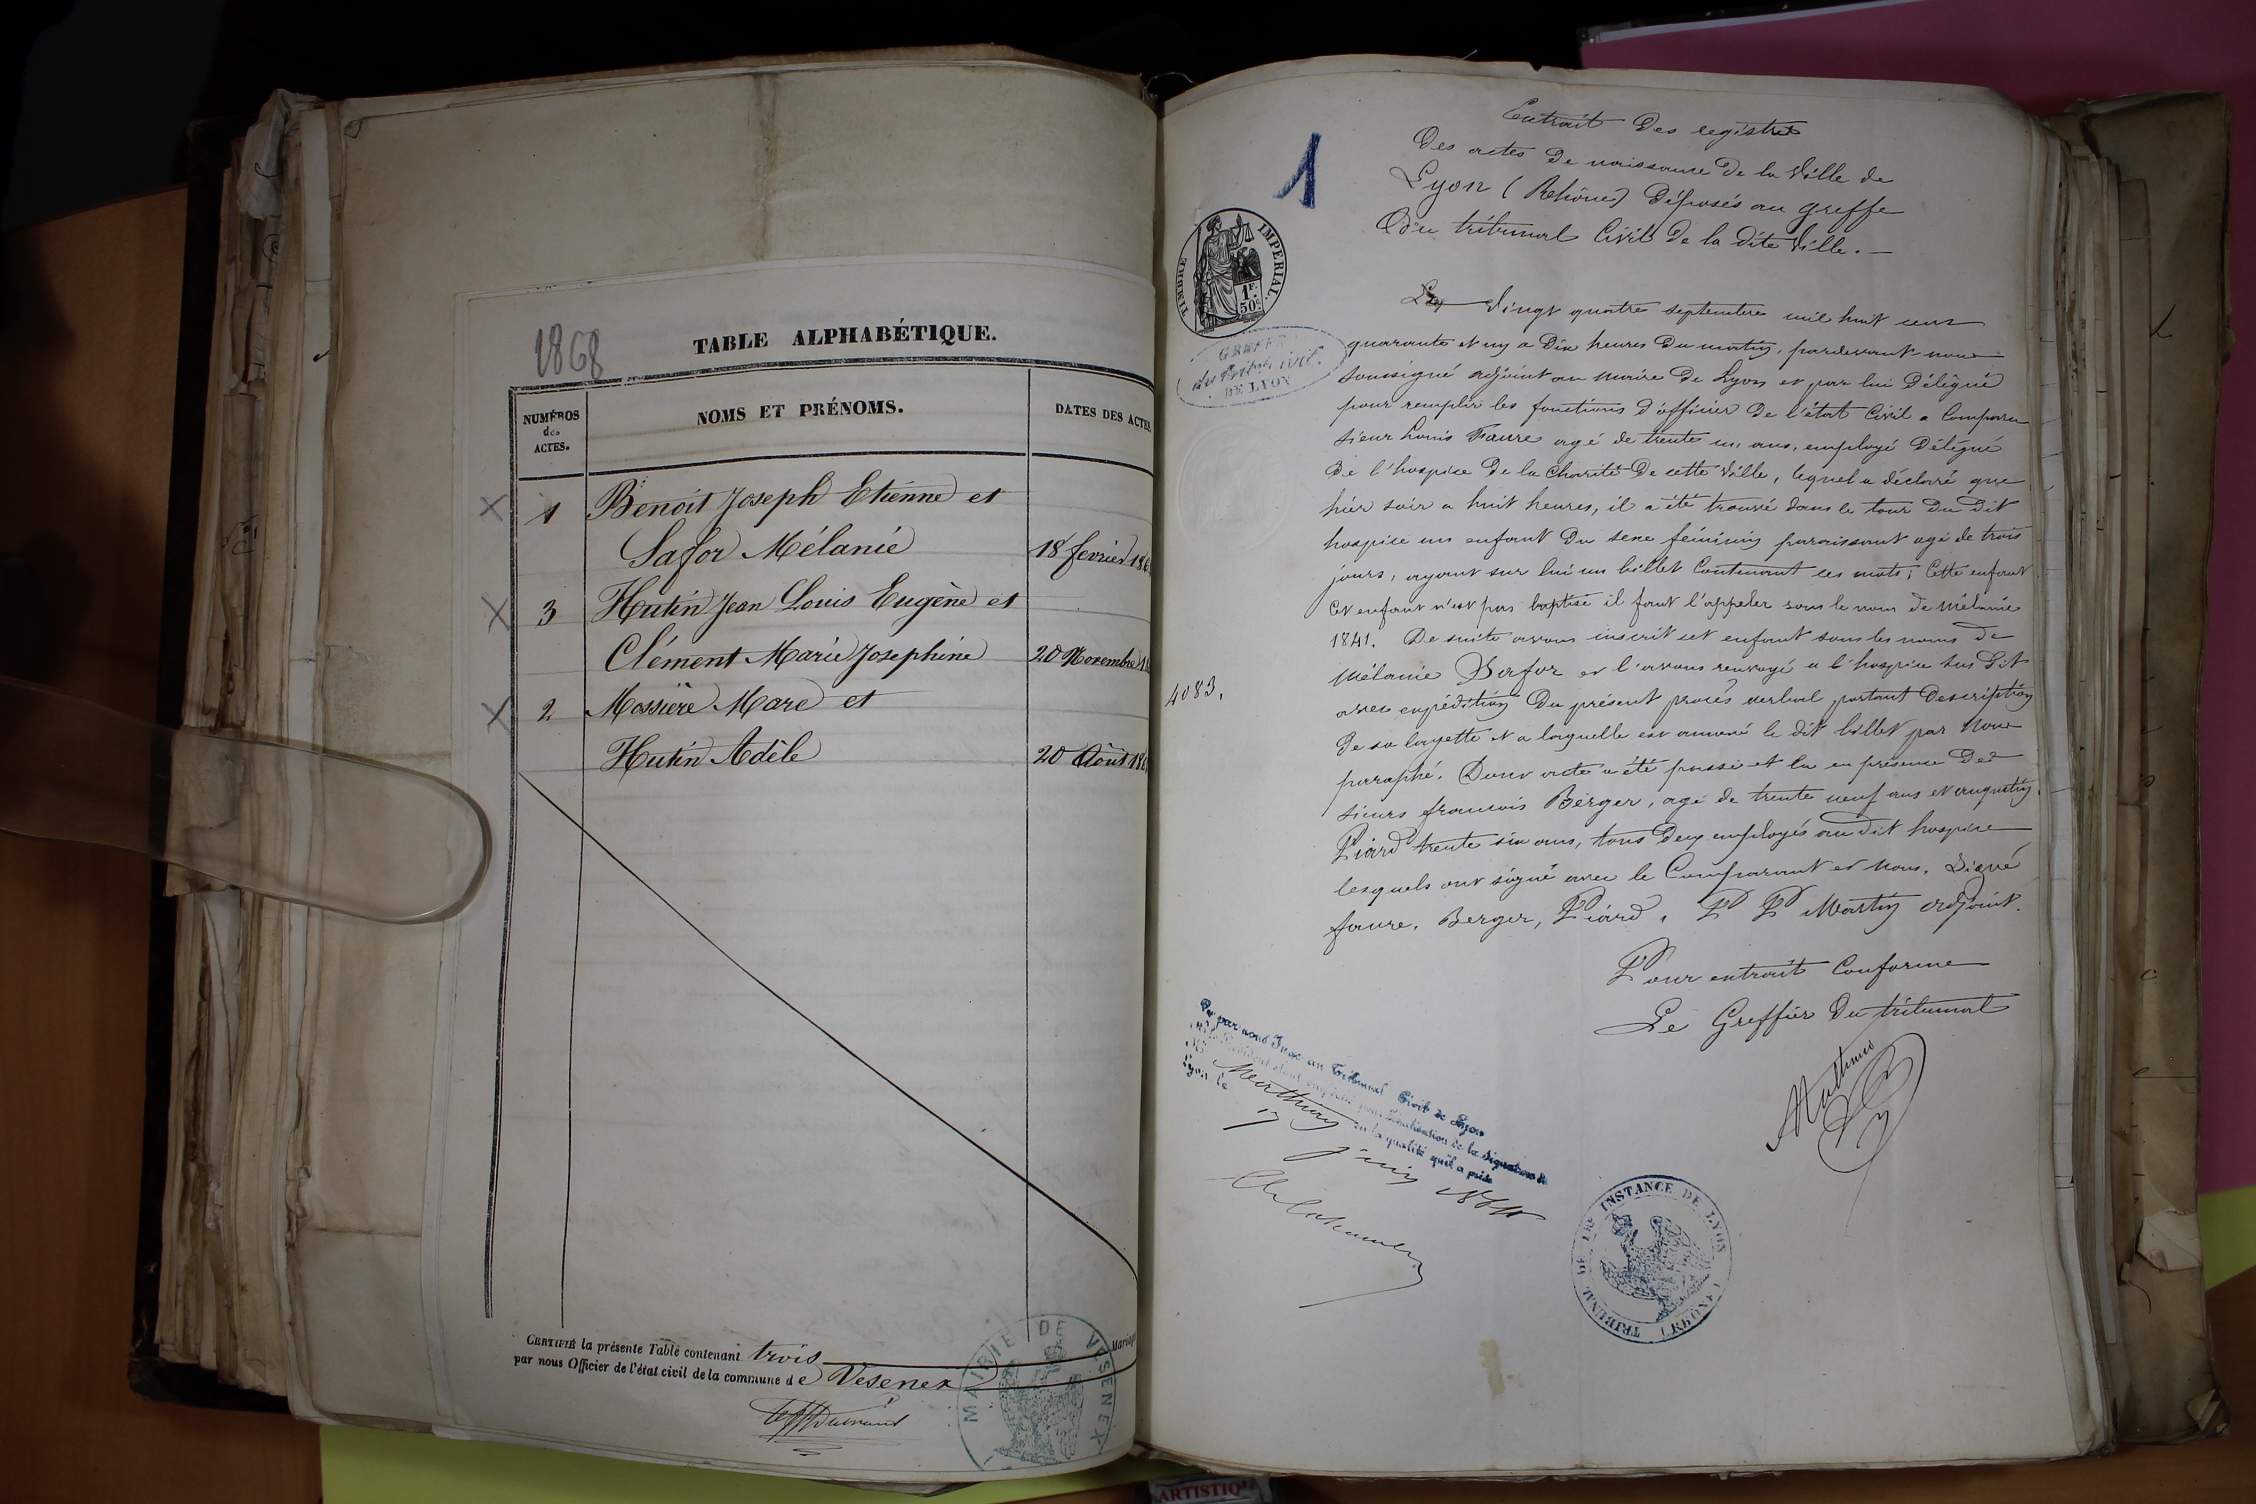 1868
TABLE ALPHABÉTIQUE.
NUMÉROS
des
ACTES.
NOMS ET PRÉNOMS.
DATES DES ACTES
1 Benoit Joseph Etienne et
Safor Mélanie 18 fevrier 186
3 Hutin Jean Louis Eugène et
Clément Marie Josephine 20 Novembre 18
2 Mossière Marc et
Hutin Adèle 20 Août 186
CERTIFIÉ la présente Table contenant trois Mariage
par nous Officier de l'état civil de la commune de Vesenex
MAIRIE DE VESENEX
1
Extrait des registres
Des actes de naissance de la Ville de
Lyon (Rhône) déposés au greffe
Du tribunal Civil de la dite Ville.
TIMBRE IMPERIAL.
1F.
50c
GREFFE
du Tribal civil.
DE LYON
Le vingt quatre septembre mil huit cent
quarante et un a dix heures du matin, pardevant nous
soussigné adjoint au maire de Lyon et par lui délégué
pour remplir les fonctions d'officier de l'état Civil a Comparu
sieur Louis Faure agé de trente un ans, employé délégué
de l'hospice de la Charité de cette Ville, lequel a déclaré que
hier soir a huit heures, il a été trouvé dans le tour du dit
hospice un enfant du sexe féminin paraissant agé de trois
jours, ayant sur lui un billet Contenant ces mots; Cette enfant
Cet enfant n'est pas baptisé il faut l'appeler sous le nom de Mélanie
1841. De suite avons inscrit cet enfant sous les noms de
Mélanie Safor et l'avons renvoyé a l'hospice sus dit
4083.
avec expédition du présent procès verbal portant description
de sa layette et a laquelle est annexé le dit billet par Nous
paraphé. Dont acte a été passé et lu en présence des
sieurs françois Berger, agé de trente neuf ans et augustin
Piard trente six ans, tous deux employés au dit hospice
lesquels ont signé avec le Comparant et nous. Signé
faure. Berger, Piard, P P Martin adjoint.
Pour extrait Conforme
Le Greffier du tribunal
Vu par nous Juge au Tribunal Civil de Lyon
pour légalisation de la signature de
en la qualité qu'il a prise
Lyon le 17 juin
TRIBUNAL DE 1RE INSTANCE DE LYON (RHONE)
ARTISTIQ